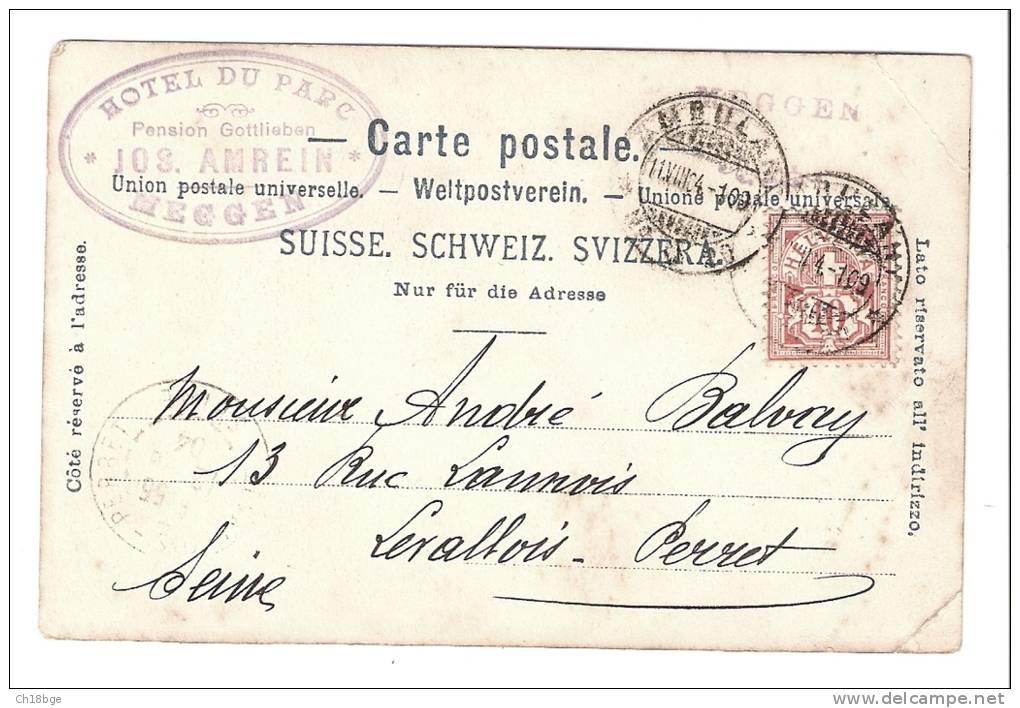 HOTEL DU PARC
Pension Gottlieben
* JOS. AMREIN *
MEGGEN
MEGGEN
— Carte postale. —
Union postale universelle. — Weltpostverein. — Unione postale universale
SUISSE. SCHWEIZ. SVIZZERA.
Nur für die Adresse
Côté réservé à l'adresse.
Lato riservato all' indirizzo.
AMBULANT
HELVETIA
FRANCO
10
Monsieur André Balvay
13 Rue Lannois
Levallois-Perret
Seine
PERRET
04
Ch18bge
www.delcampe.net